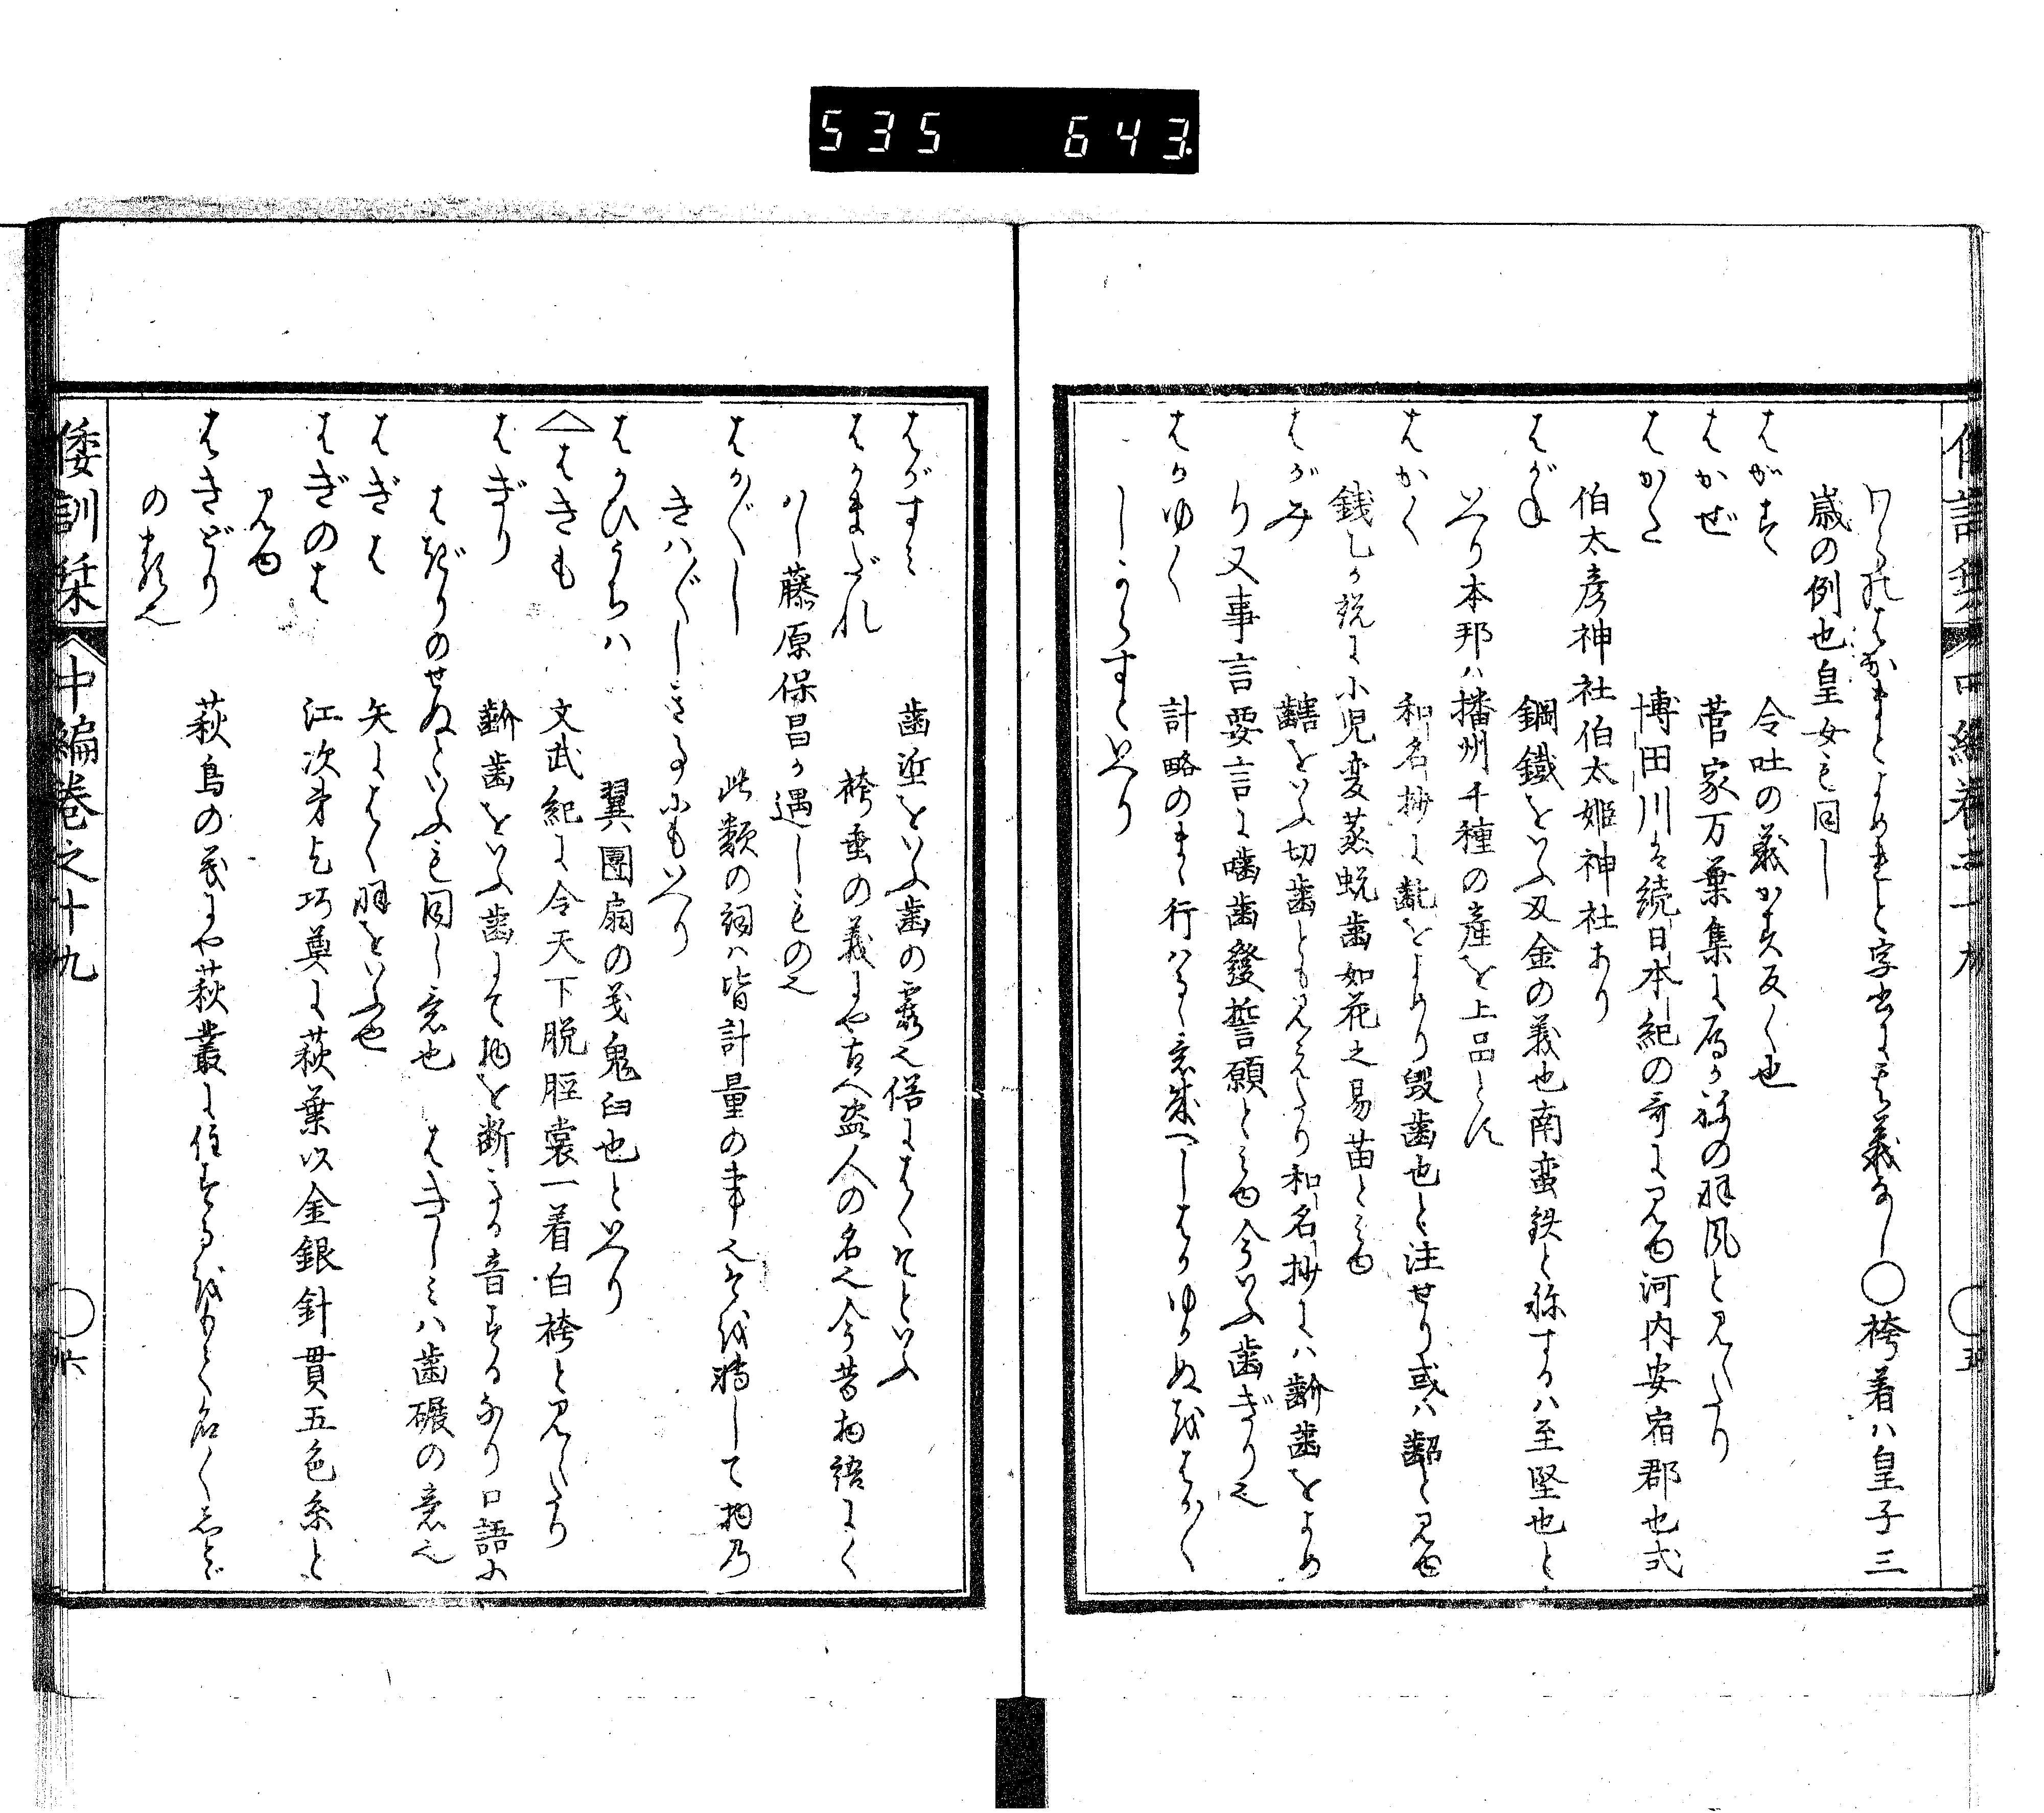 535 643
けるれはかまとよめれと字書に其義なし○袴着ハ皇子三
歳の例也皇女も同し
はがす 令吐の義かす反く也
はかぜ 菅家万葉集に鴈か祢の羽風と見えたり
はかた 博田川は続日本紀の哥に見ゆ河内安宿郡也式
伯太彦神社伯太姫神社あり
はがね 鋼鐵をいふ刃金の義也南蛮鉄と称するハ至堅也と
いへり本邦ハ播州千種の産を上品とす
はかく 和名抄に齔をよめり毀歯也と注せり或ハ齠と見ゆ
銭乙か説に小児変蒸蛻歯如花之易苗とみゆ
はがみ 齰をいふ切歯とも見えたり和名抄にハ齘歯をよめ
り又事言要言に噛歯發誓願とみゆ今いふ歯ぎり也
はかゆく 計略のまゝ行ハるゝ意成へしはかゆかぬ或はかく
しからすといへり
はがすみ 歯垽をいふ歯の霞也俗にはくそといふ
はかまだれ 袴垂の義にや古へ盗人の名也今昔物語にく
ハし藤原保昌か遇しもの也
はかがし 此類の詞ハ皆計量の事也そ或轉して物乃
きハ〴〵しきる小もいへり
はかひうちハ 翼團扇の義鬼臼也といへり
△はきも 文武紀に令天下脱脛裳一着白袴と見えたり
はぎり 齘歯をいふ歯にて物を断する音するなり口語に
はぎりのせぬといふも同し意也 はきしミハ歯碾の意也
はぎは 矢にはく羽をいふ也
はぎのは 江次第乞巧奠に萩葉以金銀針貫五色糸と
見ゆ
はきどり 萩鳥の義にや萩叢に住する或もて名くしとど
の類也
倭訓栞 中編巻之十九 ○六